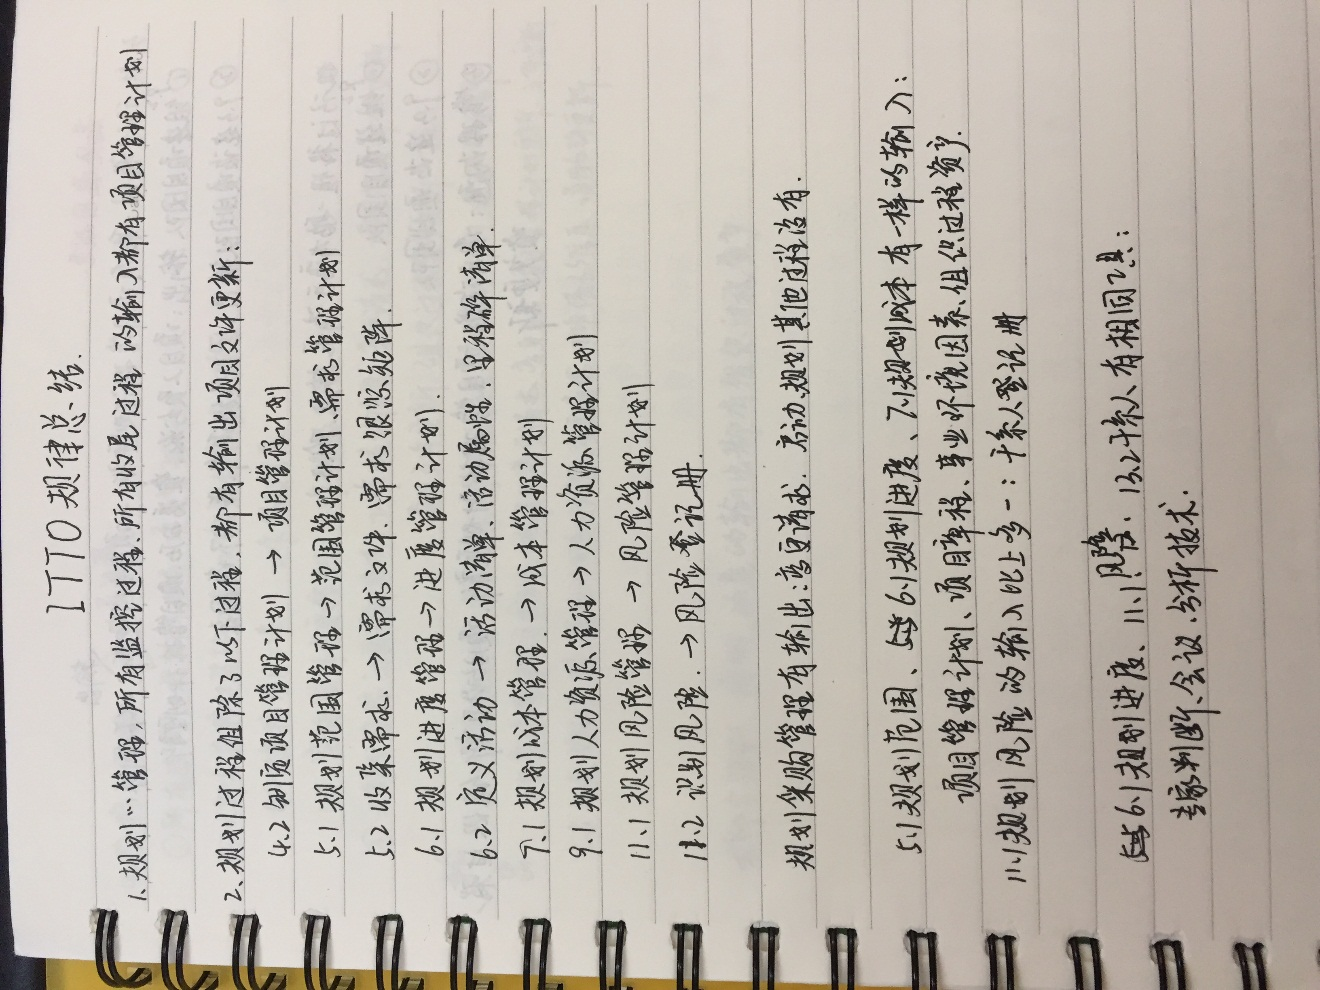 ITTO规律总结.
1.规划…管理,所有监控过程、所有收尾过程 的输入都有项目管理计划
2.规划过程组除了以下过程,都有输出 项目文件更新:
4.2 制项目管理计划 → 项目管理计划
5.1 规划范围管理 → 范围管理计划、需求管理计划
5.2 收集需求. → 需求文件、需求跟踪矩阵.
6.1 规划进度管理 → 进度管理计划.
6.2 定义活动 → 活动清单、活动属性、里程碑清单.
7.1 规划成本管理. → 成本管理计划
9.1 规划人力资源管理 → 人力资源管理计划
11.1 规划风险管理 → 风险管理计划
11.2 识别风险. → 风险登记册.
规划采购管理有输出:变更请求. 启动、规划其他过程没有.
5.1规划范围、6.1规划进度、7.1规划成本 有一样的输入:
项目管理计划、项目章程、事业环境因素、组织过程资产.
11.1规划风险 的输入比上多一:干系人登记册
6.1规划进度、11.1风险、13.2干系人有相同工具:
专家判断、会议、分析技术.